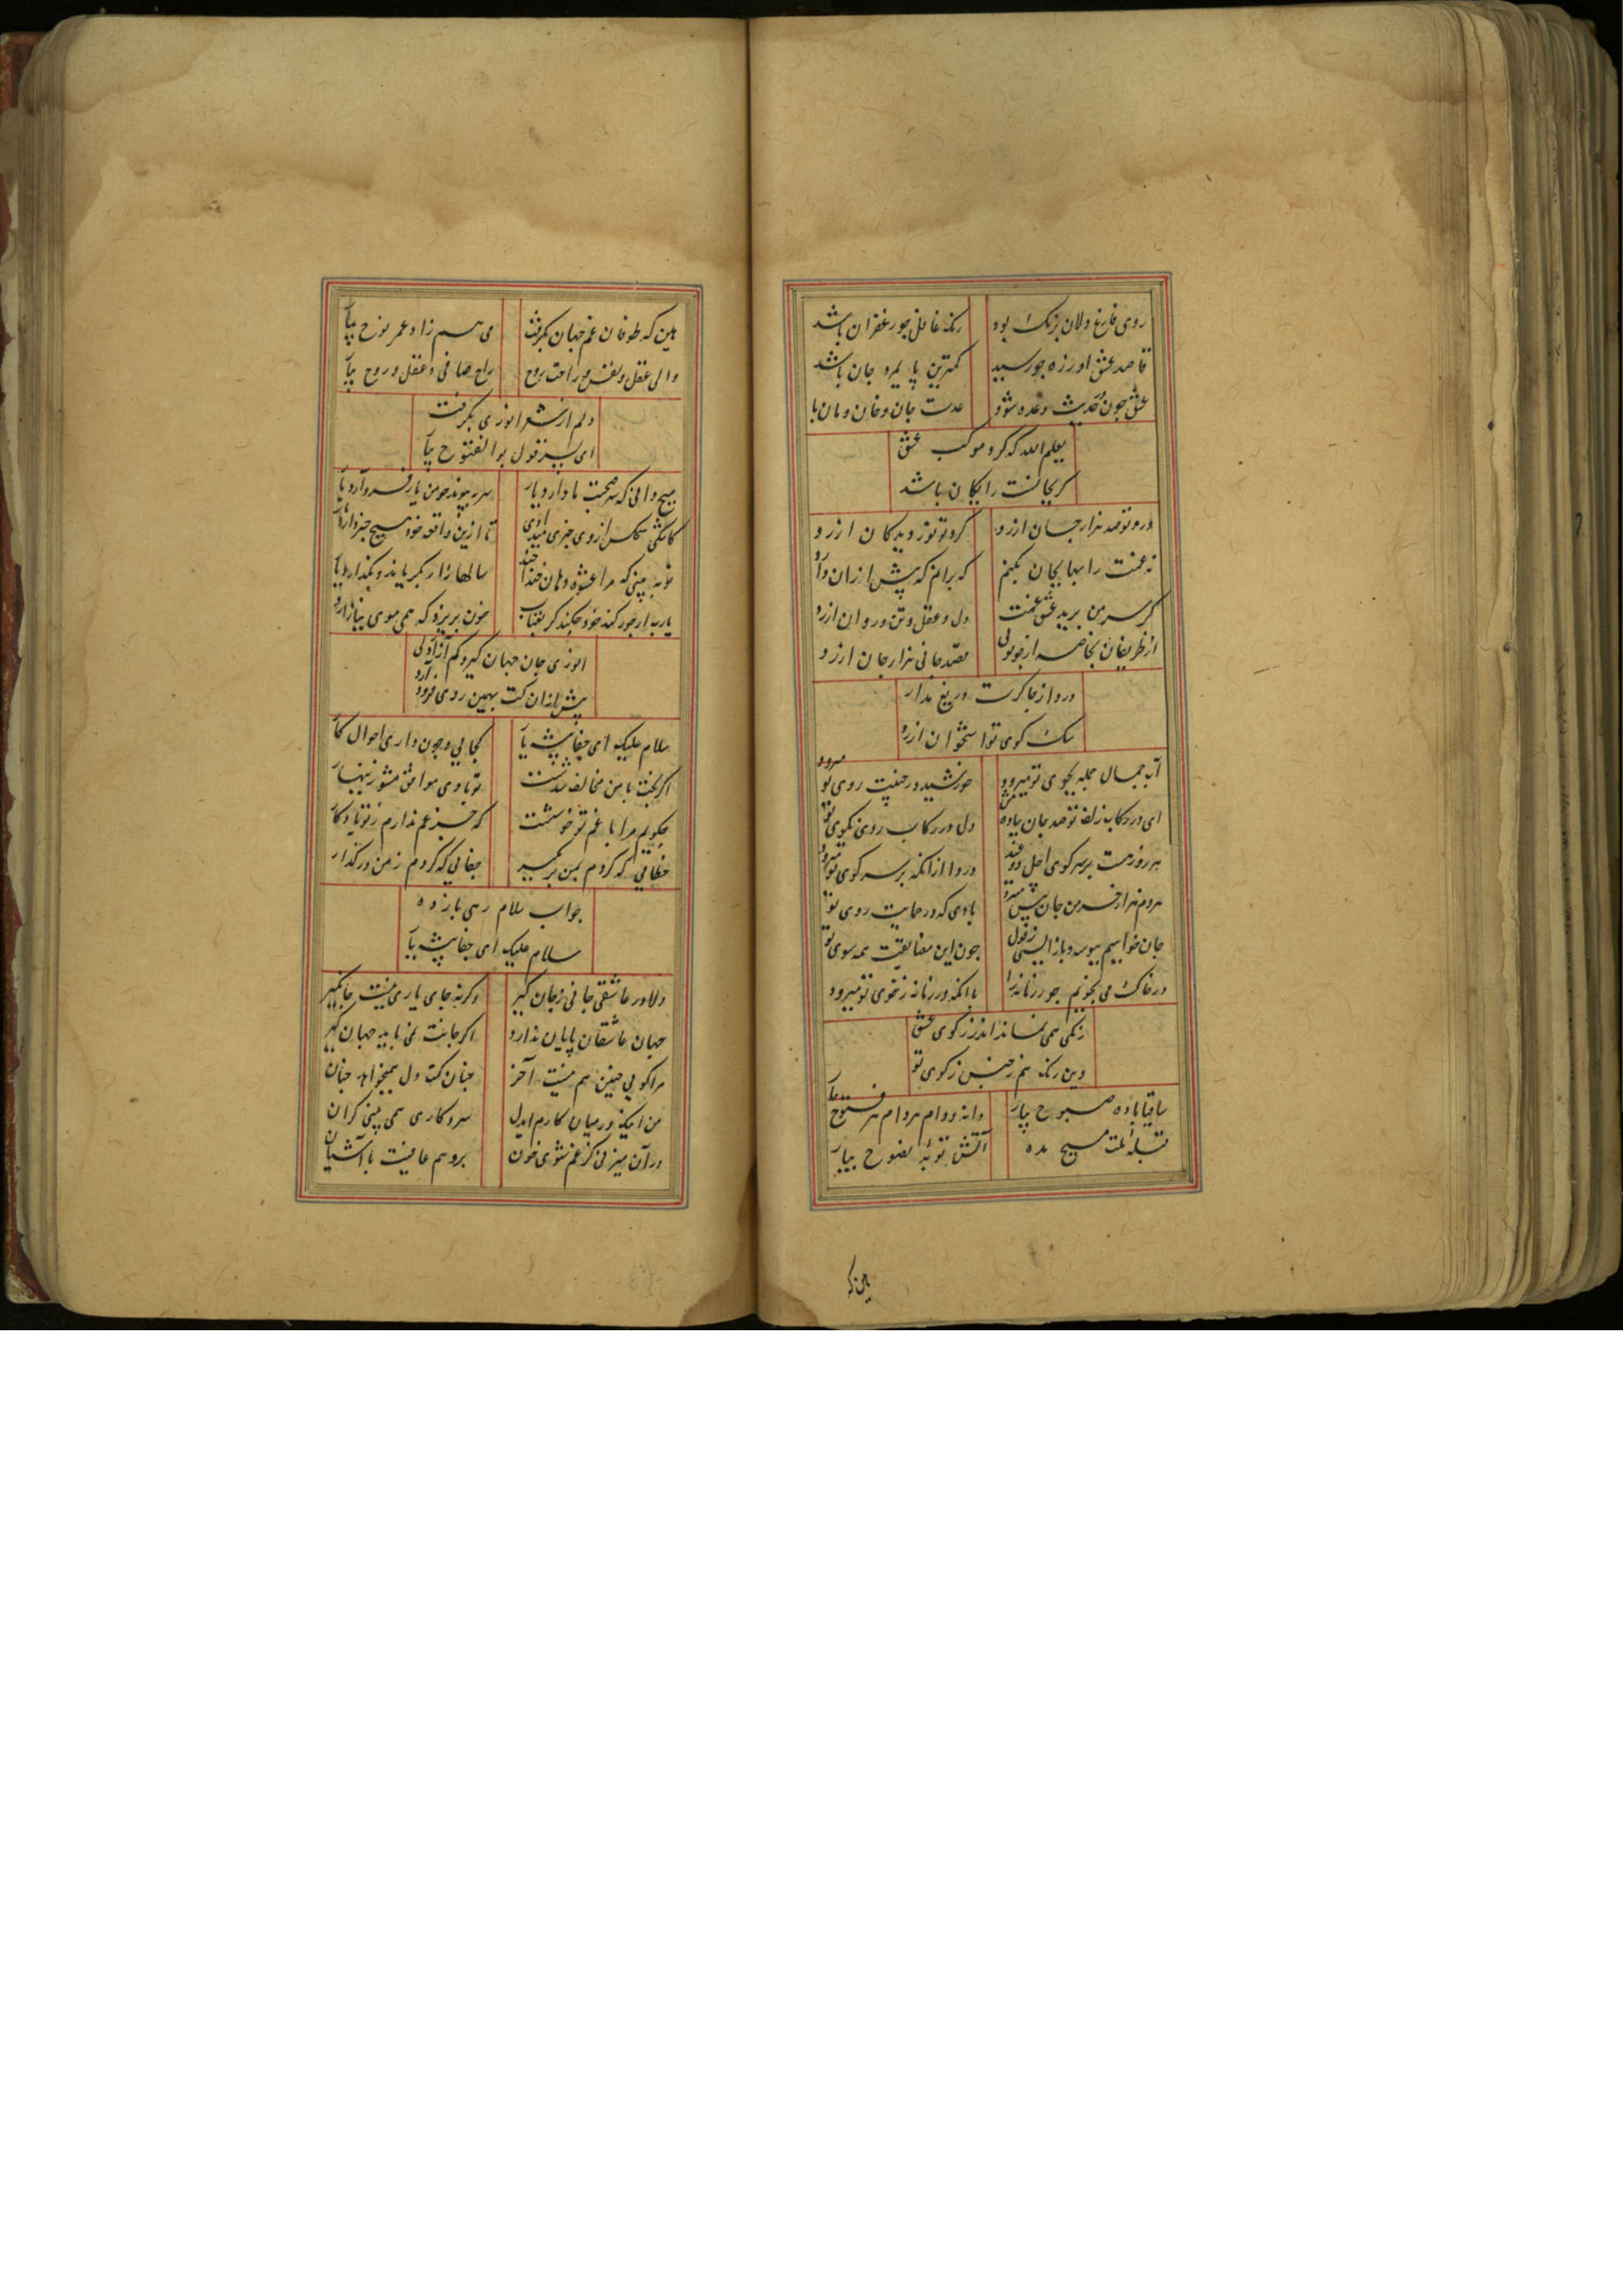 روی فارغ دلان برنگ بود رنگ غافل چو زعفران باشد
قاصد عشق او ز ره چو رسید کمترین پایمرد جان باشد
عشق چون حدیث وعده شود عدت جان و خان و مان با
یعلم الله که گرد موکب عشق
گر بجانت رایگان باشد
درد تو صد هزار جان ارزد گرد تو نور دیدگان ارزد
نه غمت را بها بجان بکنم که برانم که پیش از آن ارزد
گر سر من برید عشق غمت دل و عقل و تن و روان ارزد
از ظریفان بخاصه از چو تویی بصد جانی هزار جان ارزد
درد از چاکرت دریغ مدار
سگ کوی تو استخوان ارزد
آب جمال جمله بجوی تو میرود خورشید در جنیبت روی تو میرود
ای در رکاب زلف تو صد جان پیاده بیش دل در رکاب روی نکوی تو
هر روز هست بر سر کوی اجل دو عید درد از آنکه بر سر کوی تو میرود
هر دم هزار خرمن جان بیش میرود بادی که در حمایت روی تو
جان خواهیم ببوسه و باز ایستی ز قول چون این مضایقت همه سوی تو
در خاک می بجویم جور زمانه را با آنکه در زمانه ز خوی تو میرود
رنگی همی نماند اندر ز کوی عشق
وین رنگ هم ز جنس ز کوی تو
ساقیا باده صبوح بیار دانه دام هر فتوح بیار
قبله ملت مسیح بده آتش توبه نصوح بیار
هین که
هین که طوفان غم جهان بگرفت می همزاد عمر نوح بیار
والی عقل و نفس و راحت روح راح صافی و عقل و روح بیار
دلم از شعر انوری بگرفت
ای پسر قول بوالفتوح بیار
هیچ دانی که سر صحبت ما دارد یار سر پیوند چو من یار فرود آرد یار
کاشکی هیچکس از وی خبری میدادی تا ازین واقعه خود هیچ خبر دارد یار
تو به بینی که مرا عشوه دهان خنداخند سالها زار بگریاند و بگذارد یار
یارب ار جور کند خود چکند گر بعتاب خون بریزد که همی موی نیازارد
انوری جان جهان گیر و کم آزاری
پیش از آن کت بهمین روی فرود آرد
سلام علیک ای جفا پیشه یار کجایی و چون داری احوال کار
اگر بخت با من مخالف شدست تو با وی موافق مشو زینهار
چگویم مرا با غم تو خوشست که جز غم ندارم ز تو یادگار
خطایی که کردم بمن بر مگیر جفایی که کردم ز من در گذار
جواب سلام رهی باز ده
سلام علیک ای جفا پیشه یار
دلا در عاشقی جانی زیان گیر وگرنه جای یاری نیست جا بگیر
جهان عاشقان پایان ندارد اگر جانت نمی باید جهان گیر
مرا گویی چنین هم نیست آخر چنان کت دل همیخواهد چنان
من اینک در میان کارم ای دل سر و کاری همی بینی کران
در آن میزنی کز غم شوی خون برو هم عافیت با آشیان